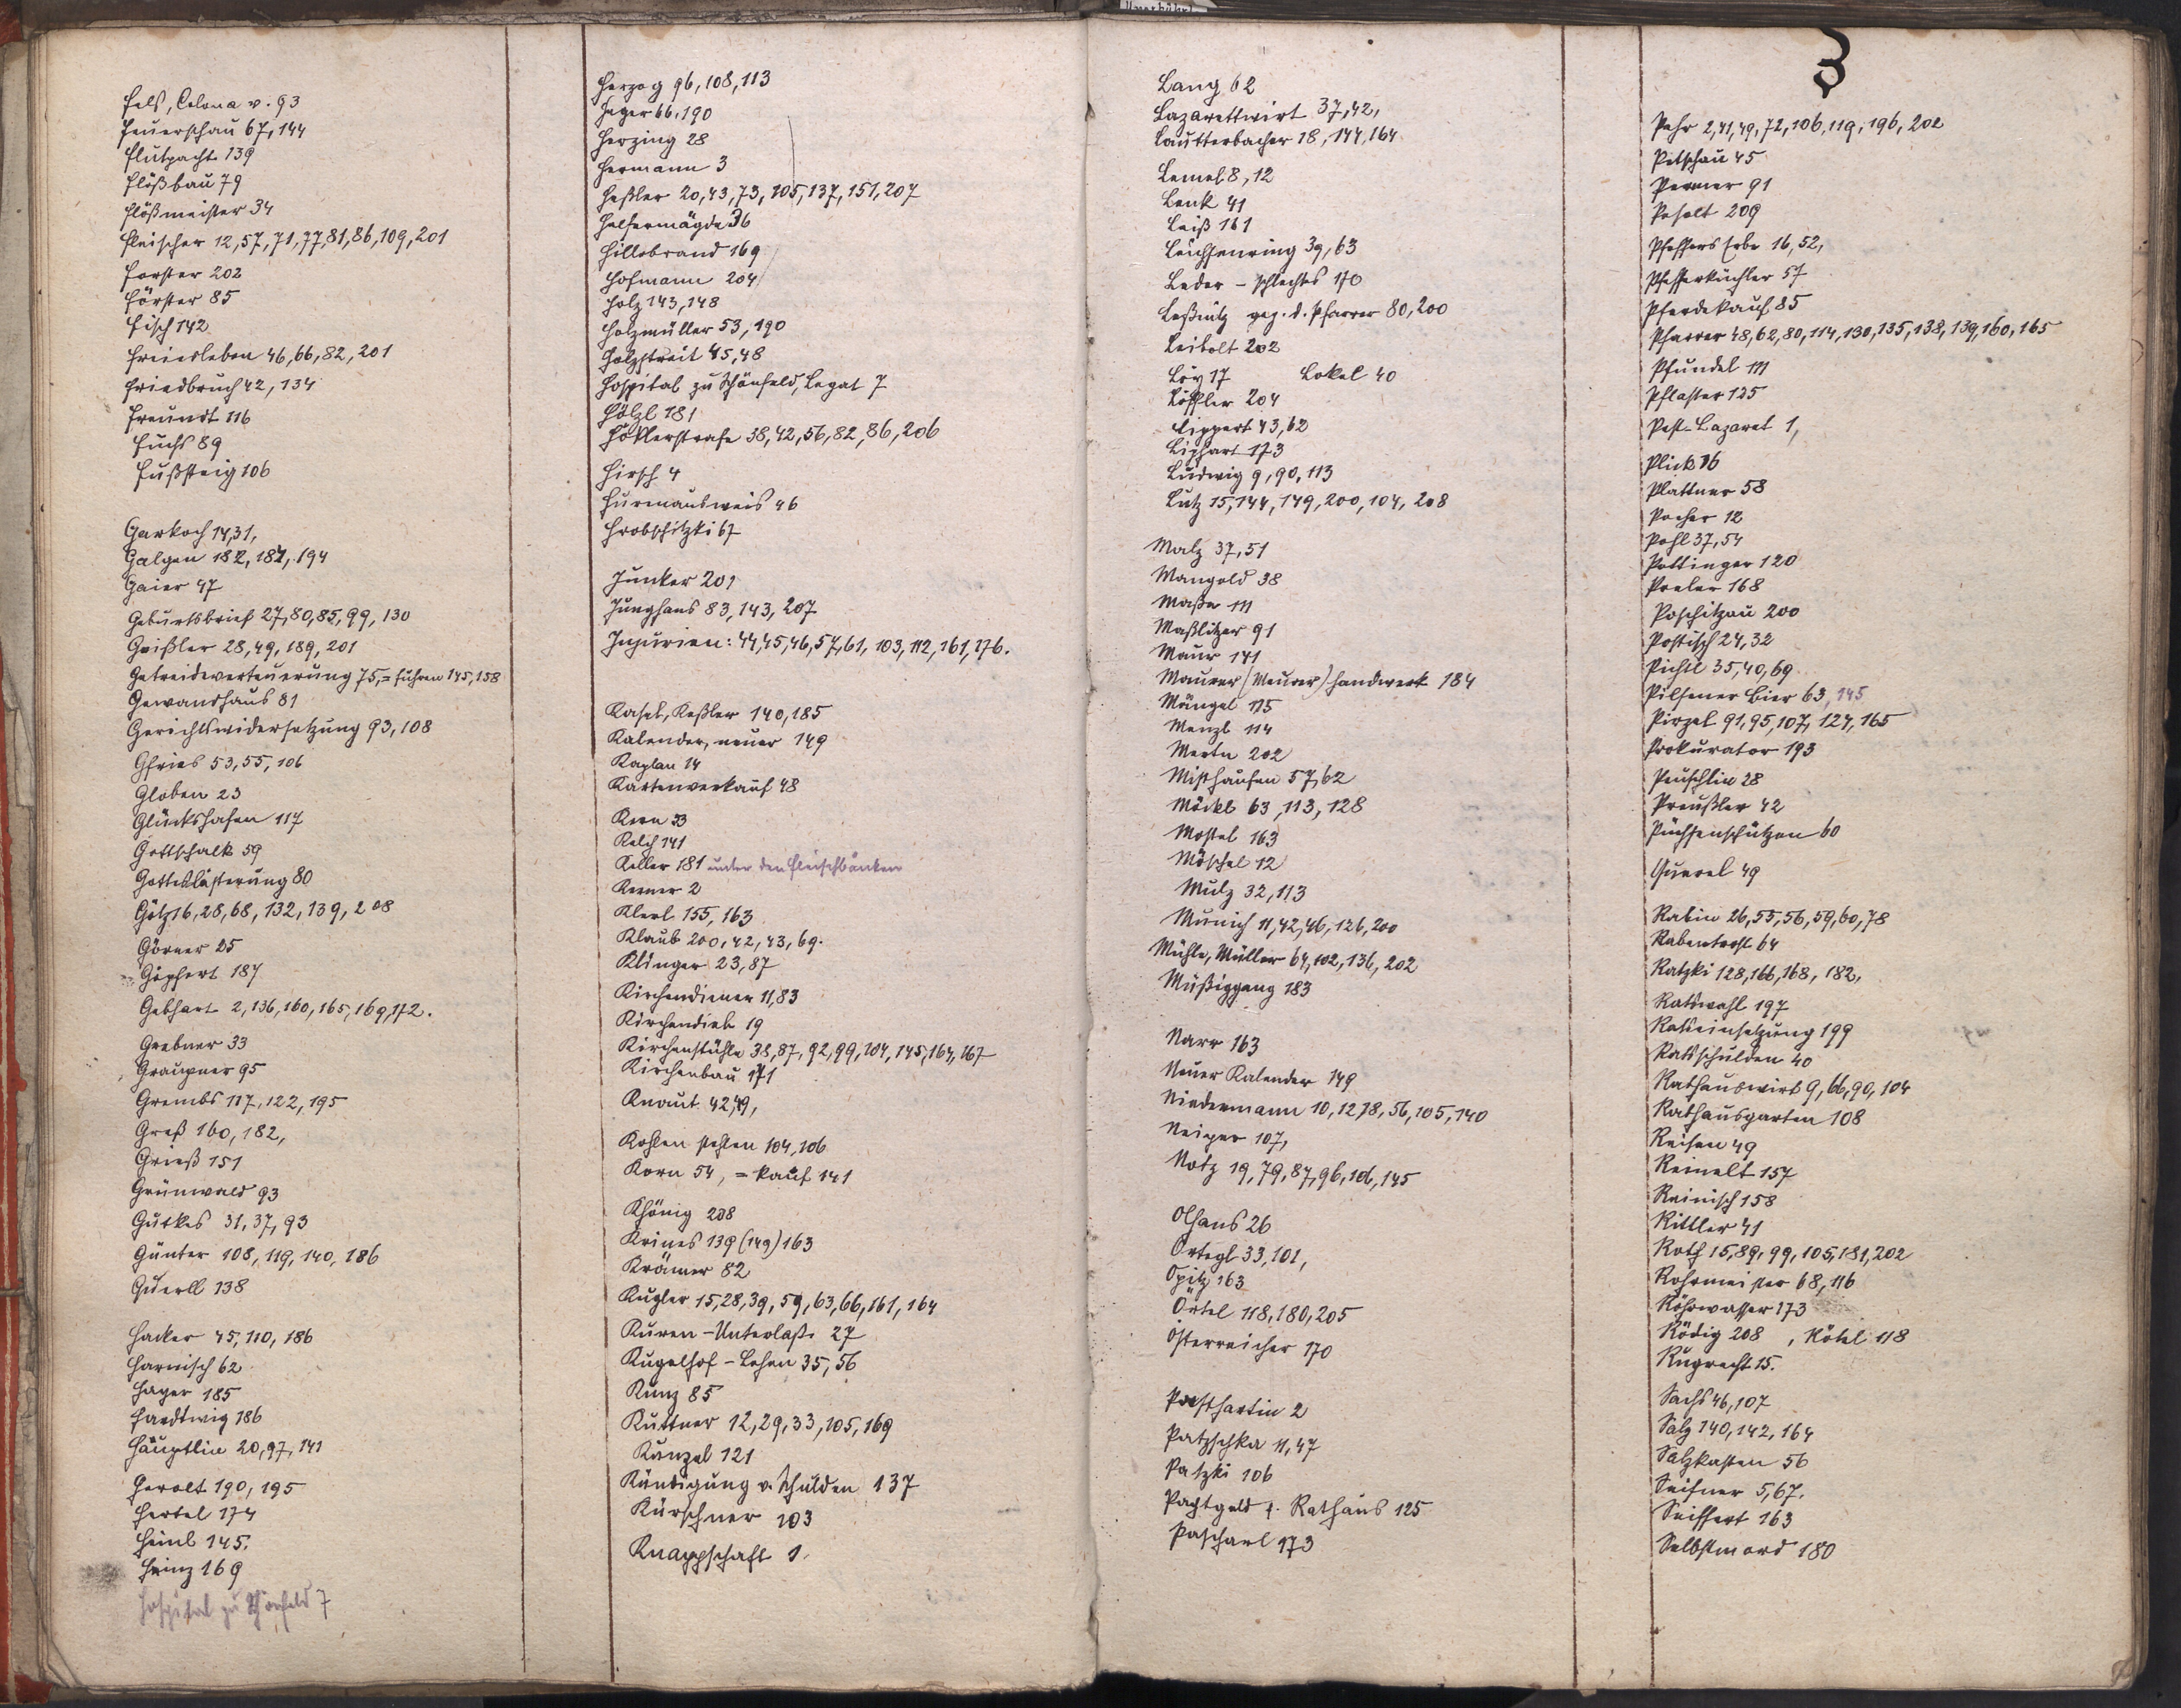 Fels, Colona v. 93
Feuerschau 67, 144
Flutpacht 139
Flößbau 79
Flößmeister 34
Fleischer 12, 57, 71, 77, 81, 86, 109, 201
Forster 202
Förster 85
Fisch 142
Freiesleben 46, 66, 82, 201
Friedbruch 42, 134
Freundt 116
Fuchs 89
Fußsteig 106
Garkoch 14, 31,
Galgen 182, 187, 194
Gaier 47
Geburtsbrief 27, 80, 85, 99, 130
Geißler 28, 49, 189, 201
Getreideverteuerung 75, = führen 145, 158
Gewandhaus 81
Gerichtswidersetzung 93, 108
Gfries 53, 55, 106
Globen 23
Glückshafen 117
Gottschalk 59
Gotteslästerung 80
Götz 16, 28, 68, 132, 139, 208
Görner 25
Göpfert 187
Gebhart 2, 136, 160, 165, 169, 172.
Grebner 33
Graupner 95
Grembs 117, 122, 195
Greß 160, 182,
Grieß 151
Grünwald 93
Gutkes 31, 37, 93
Günter 108, 119, 140, 186
Guerll 138
Hacker 45, 110, 186
Harnisch 62
Hager 185
Hardtwig 186
Häuptlin 20, 97, 141
Herolt 190, 195
Hertel 174
Heinl 145.
Heinz 169
Hospital zu Schönfeld 7
Herzog 96, 108, 113
Heger 66, 190
Herzing 28
Hermann 3
Heßler 20, 43, 73, 105, 137, 151, 207
Helfermägde 36
Hillebrand 169
Hofmann 204
Holz 143, 148
Holzmüller 53, 190
Holzstreit 45, 48
Hospital zu Schönfeld, Legat 7
Hölzl 181
Höklerstrafe 38, 42, 56, 82, 86, 206
Hirsch 4
Hurmausweis 46
Hrobschitzki 67
Junker 201
Junghans 83, 143, 207
Injurien: 44, 45, 46, 57, 61, 103, 112, 161, 176.
Kasel, Keßler 140, 185
Kalender, neuer 149
Kaplan 14
Kartenverkauf 48
Kern 33
Kelch 141
Keller 181 unter den Fleischbänken
Kerner 2
Klerl 155, 163
Klaub 200, 42, 43, 69.
Klinger 23, 87
Kirchendiener 11, 83
Kirchendieb 19
Kirchenstühle 38, 87, 92, 99, 104, 145, 164, 167
Kirchenbau 171
Knaut 42, 49,
Kohlen stehlen 104, 106
Korn 54, = kauf 141
Khönig 208
Krines 139 (149) 163
Krämer 82
Kugler 15, 28, 39, 59, 63, 66, 161, 164
Kuren-Unterlaß 27
Kugelhof-Lehen 35, 56
Kunz 85
Kuttner 12, 29, 33, 105, 169
Künzel 121
Kündigung v. Schulden 137
Kürschner 103
Knappschaft 1.
Lang 62
Lazarettwirt 37, 42,
Lautterbacher 18, 144, 164
Lemel 8, 12
Lenk 41
Leiß 161
Leuchsenring 39, 63
Leder - schlechtes 170
Leßnitz geg. d. Pfarrer 80, 200
Leibolt 202
Löy 17 Lokel 40
Löffler 204
Lippert 43, 62
Liphart 173
Ludwig 9, 90, 113
Lutz 15, 144, 149, 200, 104, 208
Malz 37, 51
Mangold 38
Maße 111
Maßlitzer 91
Maur 141
Maurer (Meurer) handwerk 184
Mängel 115
Menzl 114
Mertn 202
Misthaufen 57, 62
Möckl 63, 113, 128
Mostel 163
Möschel 12
Mulz 32, 113
Munich 11, 42, 46, 126, 200
Mühle, Müller 64, 102, 136, 202
Müßiggang 183
Narr 163
Neuer Kalender 149
Niedermann 10, 12, 18, 56, 105, 140
Neiper 107,
Notz 19, 79, 87, 96, 106, 145
Olhans 26
Ortegl 33, 101,
Opitz 163
Örtel 118, 180, 205
Österreicher 170
Posthartin 2
Patzschka 11, 47
Patzki 106
Pachtgeld f. Rathaus 125
Pascharl 173
3
Pehr 2, 41, 49, 72, 106, 119, 196, 202
Petschau 45
Permer 91
Peholt 209
Pfeffers Erbe 16, 52,
Pfefferküchler 57
Pferdekauf 85
Pfarrer 48, 62, 80, 114, 130, 135, 138, 139, 160, 165
Pfundel 111
Pflaster 125
Pest-Lazaret 1,
Plick 16
Plattner 58
Pocher 12
Pohl 37, 54
Pottinger 120
Preler 168
Poschitzau 200
Postisch 24, 32
Pichtl 35, 40, 69
Pilsener Bier 63, 145
Pirzel 91, 95, 107, 127, 165
Prokurator 193
Preuschlin 28
Preußler 42
Püchsenschützen 60
Querel 49
Rabin 26, 55, 56, 59, 60, 78
Rabentrost 64
Ratzki 128, 166, 168, 182,
Ratswahl 197
Ratseinsetzung 199
Ratsschulden 40
Rathauswirt 9, 66, 90, 104
Rathausgarten 108
Reisen 49
Reinelt 157
Reinisch 158
Rittler 41
Roth 15, 89, 99, 105, 181, 202
Rohrmeister 68, 116
Röhrwasser 173
Rödig 208, Rötel 118
Ruprecht 15.
Sachs 46, 107
Salz 140, 142, 164
Salzkasten 56
Seifner 5, 67.
Seiffert 163
Selbstmord 180